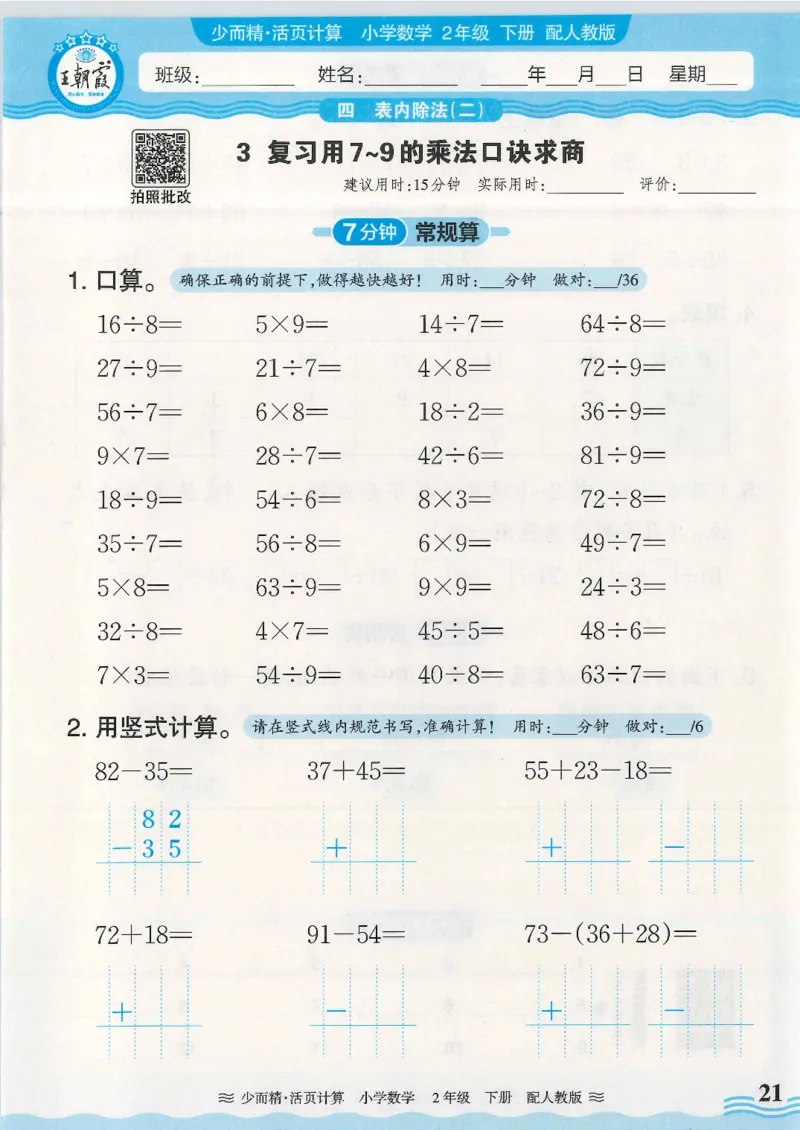 少而精·活页计算 小学数学 2年级 下册 配人教版
王朝霞
班级:________ 姓名:________ ____年__月__日 星期___
四 表内除法(二)
3 复习用7~9的乘法口诀求商
拍照批改
建议用时:15分钟 实际用时:________ 评价:________
7分钟 常规算
1. 口算。 确保正确的前提下,做得越快越好! 用时:___分钟 做对:___/36
16÷8= 5×9= 14÷7= 64÷8=
27÷9= 21÷7= 4×8= 72÷9=
56÷7= 6×8= 18÷2= 36÷9=
9×7= 28÷7= 42÷6= 81÷9=
18÷9= 54÷6= 8×3= 72÷8=
35÷7= 56÷8= 6×9= 49÷7=
5×8= 63÷9= 9×9= 24÷3=
32÷8= 4×7= 45÷5= 48÷6=
7×3= 54÷9= 40÷8= 63÷7=
2. 用竖式计算。 请在竖式线内规范书写,准确计算! 用时:___分钟 做对:___/6
82-35= 37+45= 55+23-18=
8 2
- 3 5 + + -
72+18= 91-54= 73-(36+28)=
+ - + -
少而精·活页计算 小学数学 2年级 下册 配人教版
21